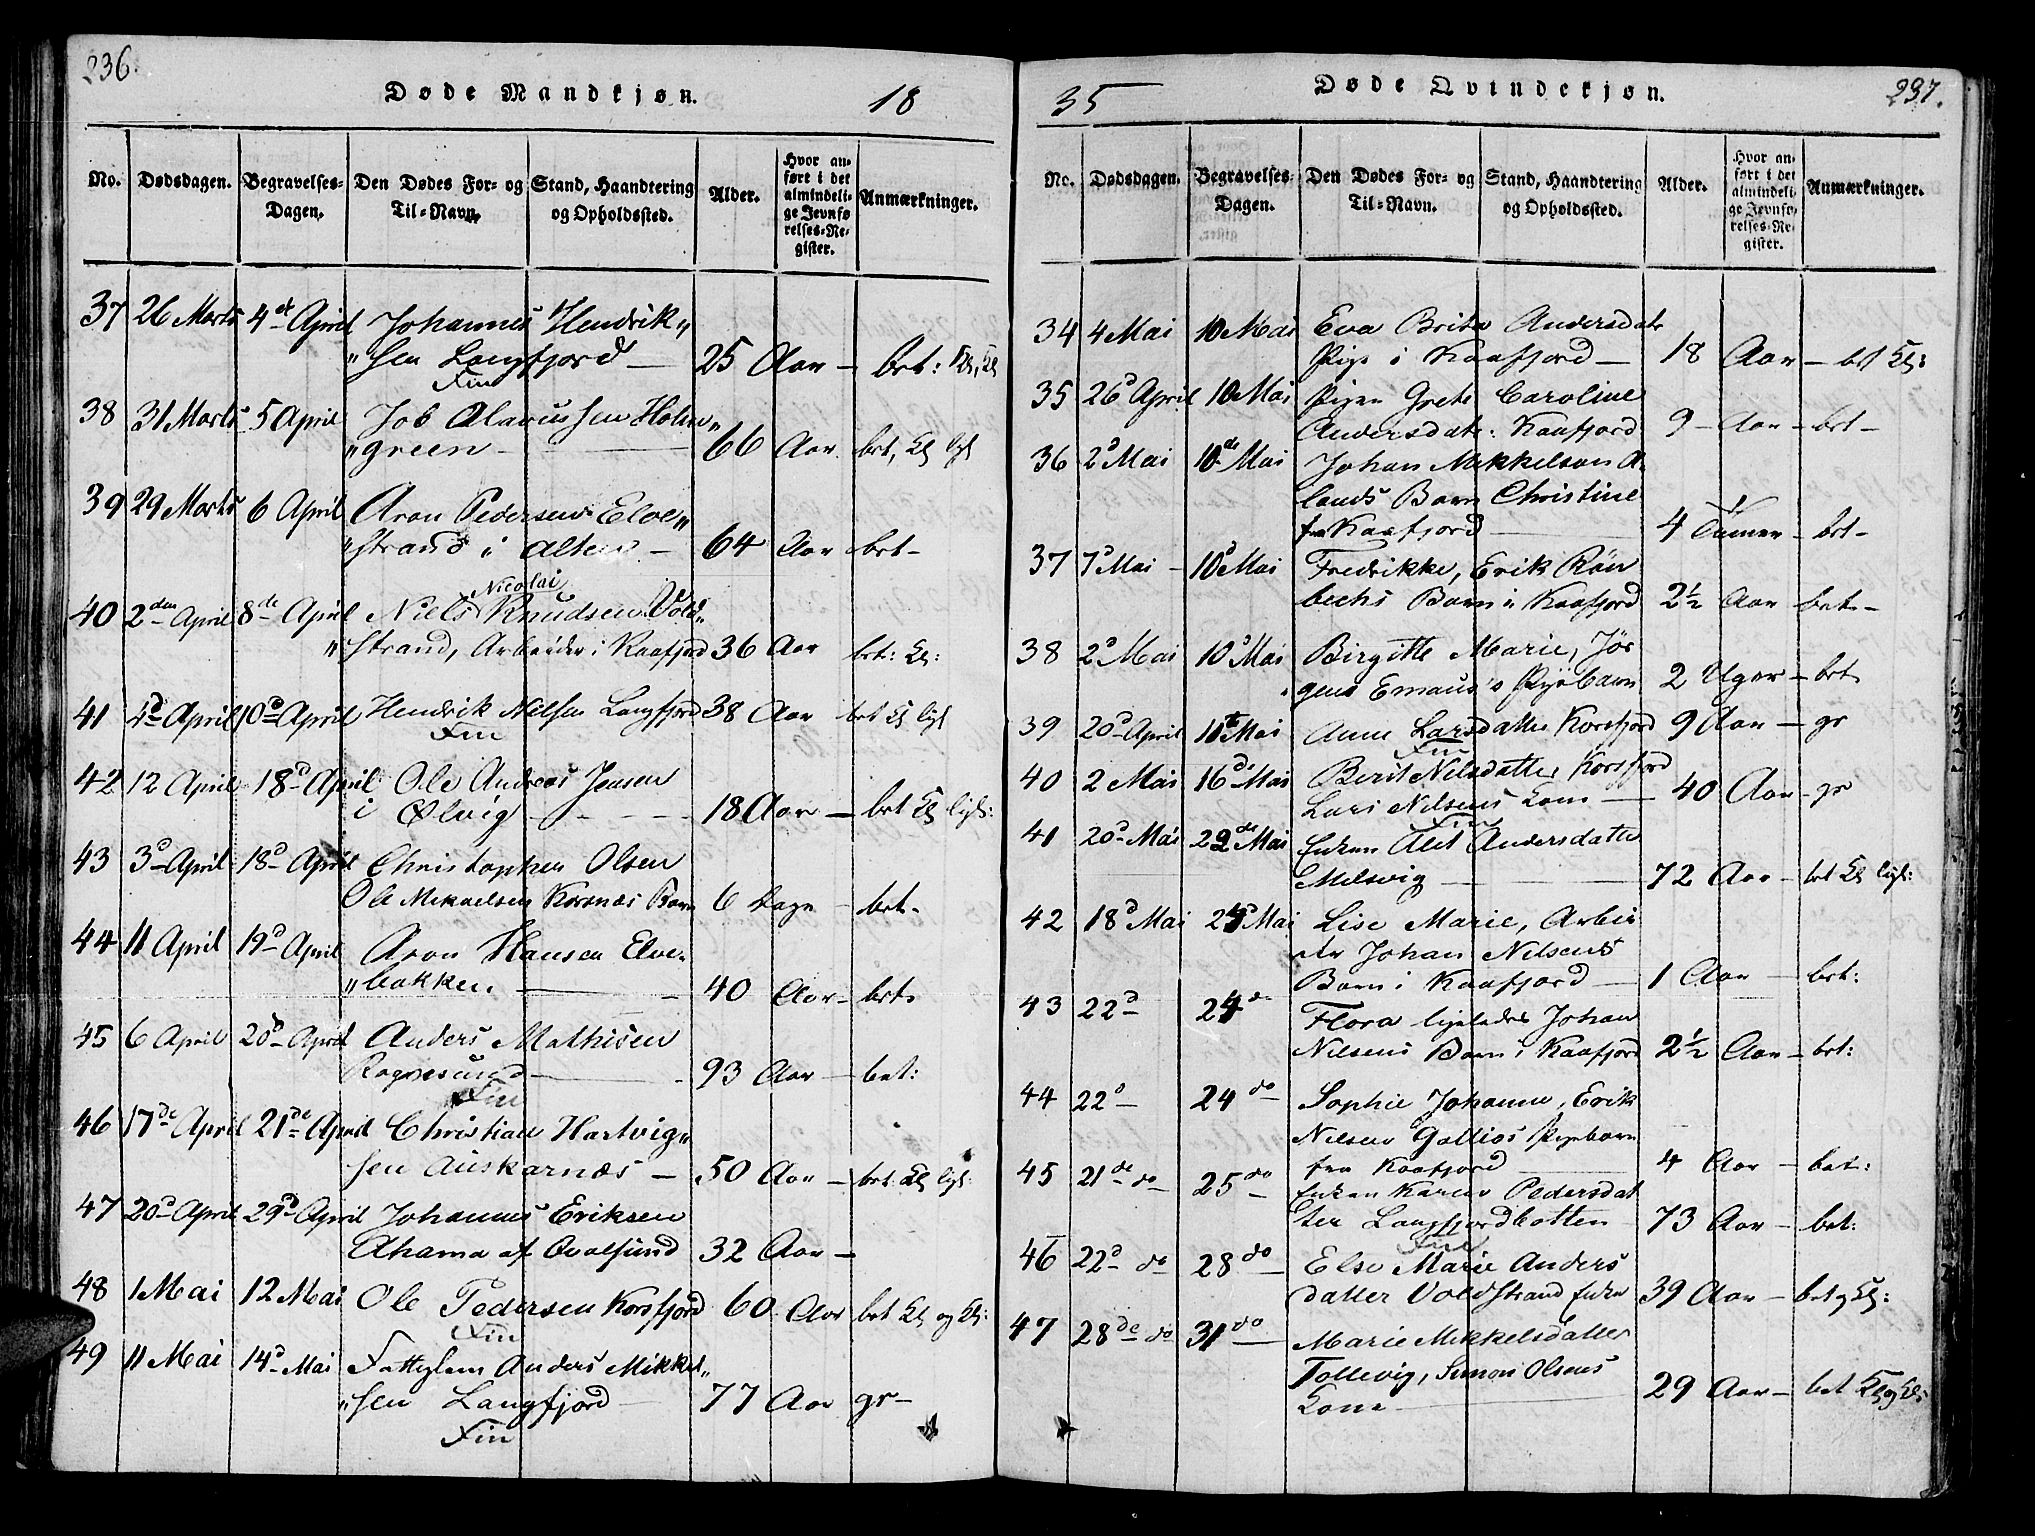 236.
Døde Mandkjøn.
18
No.
Dødsdagen.
Begravelses-
Dagen.
Den Dødes For- og
Til-Navn.
Stand, Haandtering
og Opholdssted.
Alder.
Hvor an-
ført i det
almindeli-
ge Jevnfø
relses-Re-
gister.
Anmærkninger.
37 26 Marts 4de April Johannes Hendrik„
„sen Langfjord — 25 Aar — bet:
Fin
38 31 Marts 5 April Job Olaviussen Holm„
„green — 66 Aar bet,
39 29 Marts 6 April Aron Pedersen Elve„
„strand i Alten — 64 Aar bet-
Nicolai
40 2den April 8de April Niels Knudsen Vold„
„strand, Arbeider i Kaafjord 36 Aar bet: Kl:
41 4d April 10d April Hendrik Nilsen Langfjord 38 Aar bet Kl ligt
Fin
42 12 April 18d April Ole Andreas Jensen
i Ølvig — 18 Aar — bet Kl ligt:
43 3d April 18d April Christopher Olsen
Ole Mikaelsen Korsnæs Barn 6 Dage — bet-
44 11 April 19d April Aron Hansen Elve„
„bakken — 40 Aar — bet-
45 6 April 20d April Anders Mathisen
Rognesund — 93 Aar — bet:
Fin
46 17de April 21de April Christian Hartvig„
sen Auskarnæs — 50 Aar — bet: Kl ligt:
47 20d April 29d April Johannes Eriksen
af Qvalsund 32 Aar —
48 1 Mai 12 Mai Ole Pedersen Korsfjord 60 Aar bet Kl og Kl:
Fin
49 11 Mai 14d Mai Fattiglem Anders Mikkel„
„sen Langfjord — 77 Aar gr—
Fin
35
Døde Qvindekjøn.
237.
No.
Dødsdagen.
Begravelses-
Dagen.
Den Dødes For- og
Til-Navn.
Stand, Haandtering
og Opholdssted.
Alder.
Hvor an-
ført i det
almindeli-
ge Jevnfø-
relses-Re-
gister.
Anmærkninger.
34 4 Mai 10 Mai Eva Brita Andersdatr
Pige i Kaafjord — 18 Aar — bet Kl:
35 26d April 10 Mai Pigen Grete Caroline
Andersdatr: Kaafjord 9 Aar — bet-
36 2d Mai 10de Mai Johan Mikkelsen A-
lands Barn Christine
fra Kaafjord — 4 Timer — bet-
37 7d Mai — 10d Mai Fredrikke, Erik Røn
bechs Barn i Kaafjord 2½ Aar bet-
38 2d Mai 10d Mai Birgitte Marie, Jør
gens Emaus's Pigebarn 2 Uger — bet
39 20d April 11te Mai Anne Larsdatter Korsfjord 9 Aar — gr
Fin
40 2 Mai 16d Mai Berit Nilsdatter Korsfjord
Lars Nilsens Kone — 40 Aar — gr
Fin
41 20d Mai 22de Mai Enken Alet Andersdatter
Melsvig — 72 Aar — bet Kl ligt:
42 18d Mai 24d Mai Lise Marie, Arbei
der Johan Nilsens
Barn i Kaafjord — 1 Aar — bet:
43 22d — 24 do Flora ligeledes Johan
Nilsens Barn i Kaafjord 2½ Aar — bet:
44 22d — 24 do Sophie Johanne, Erik
Nilsen Gallios Pigebarn
fra Kaafjord — 4 Aar — bet:
45 21de do 25 do Enken Karen Pedersdat
ter Langfjordbotten 73 Aar — bet:
Fin
46 22d do 28 do Else Marie Anders
datter Voldstrand Enke 39 Aar — bet og Kl:
47 28de do 31 do Marie Mikkelsdatter
Tollevig, Simon Olsens
Kone — 29 Aar — bet Kl og Kl: